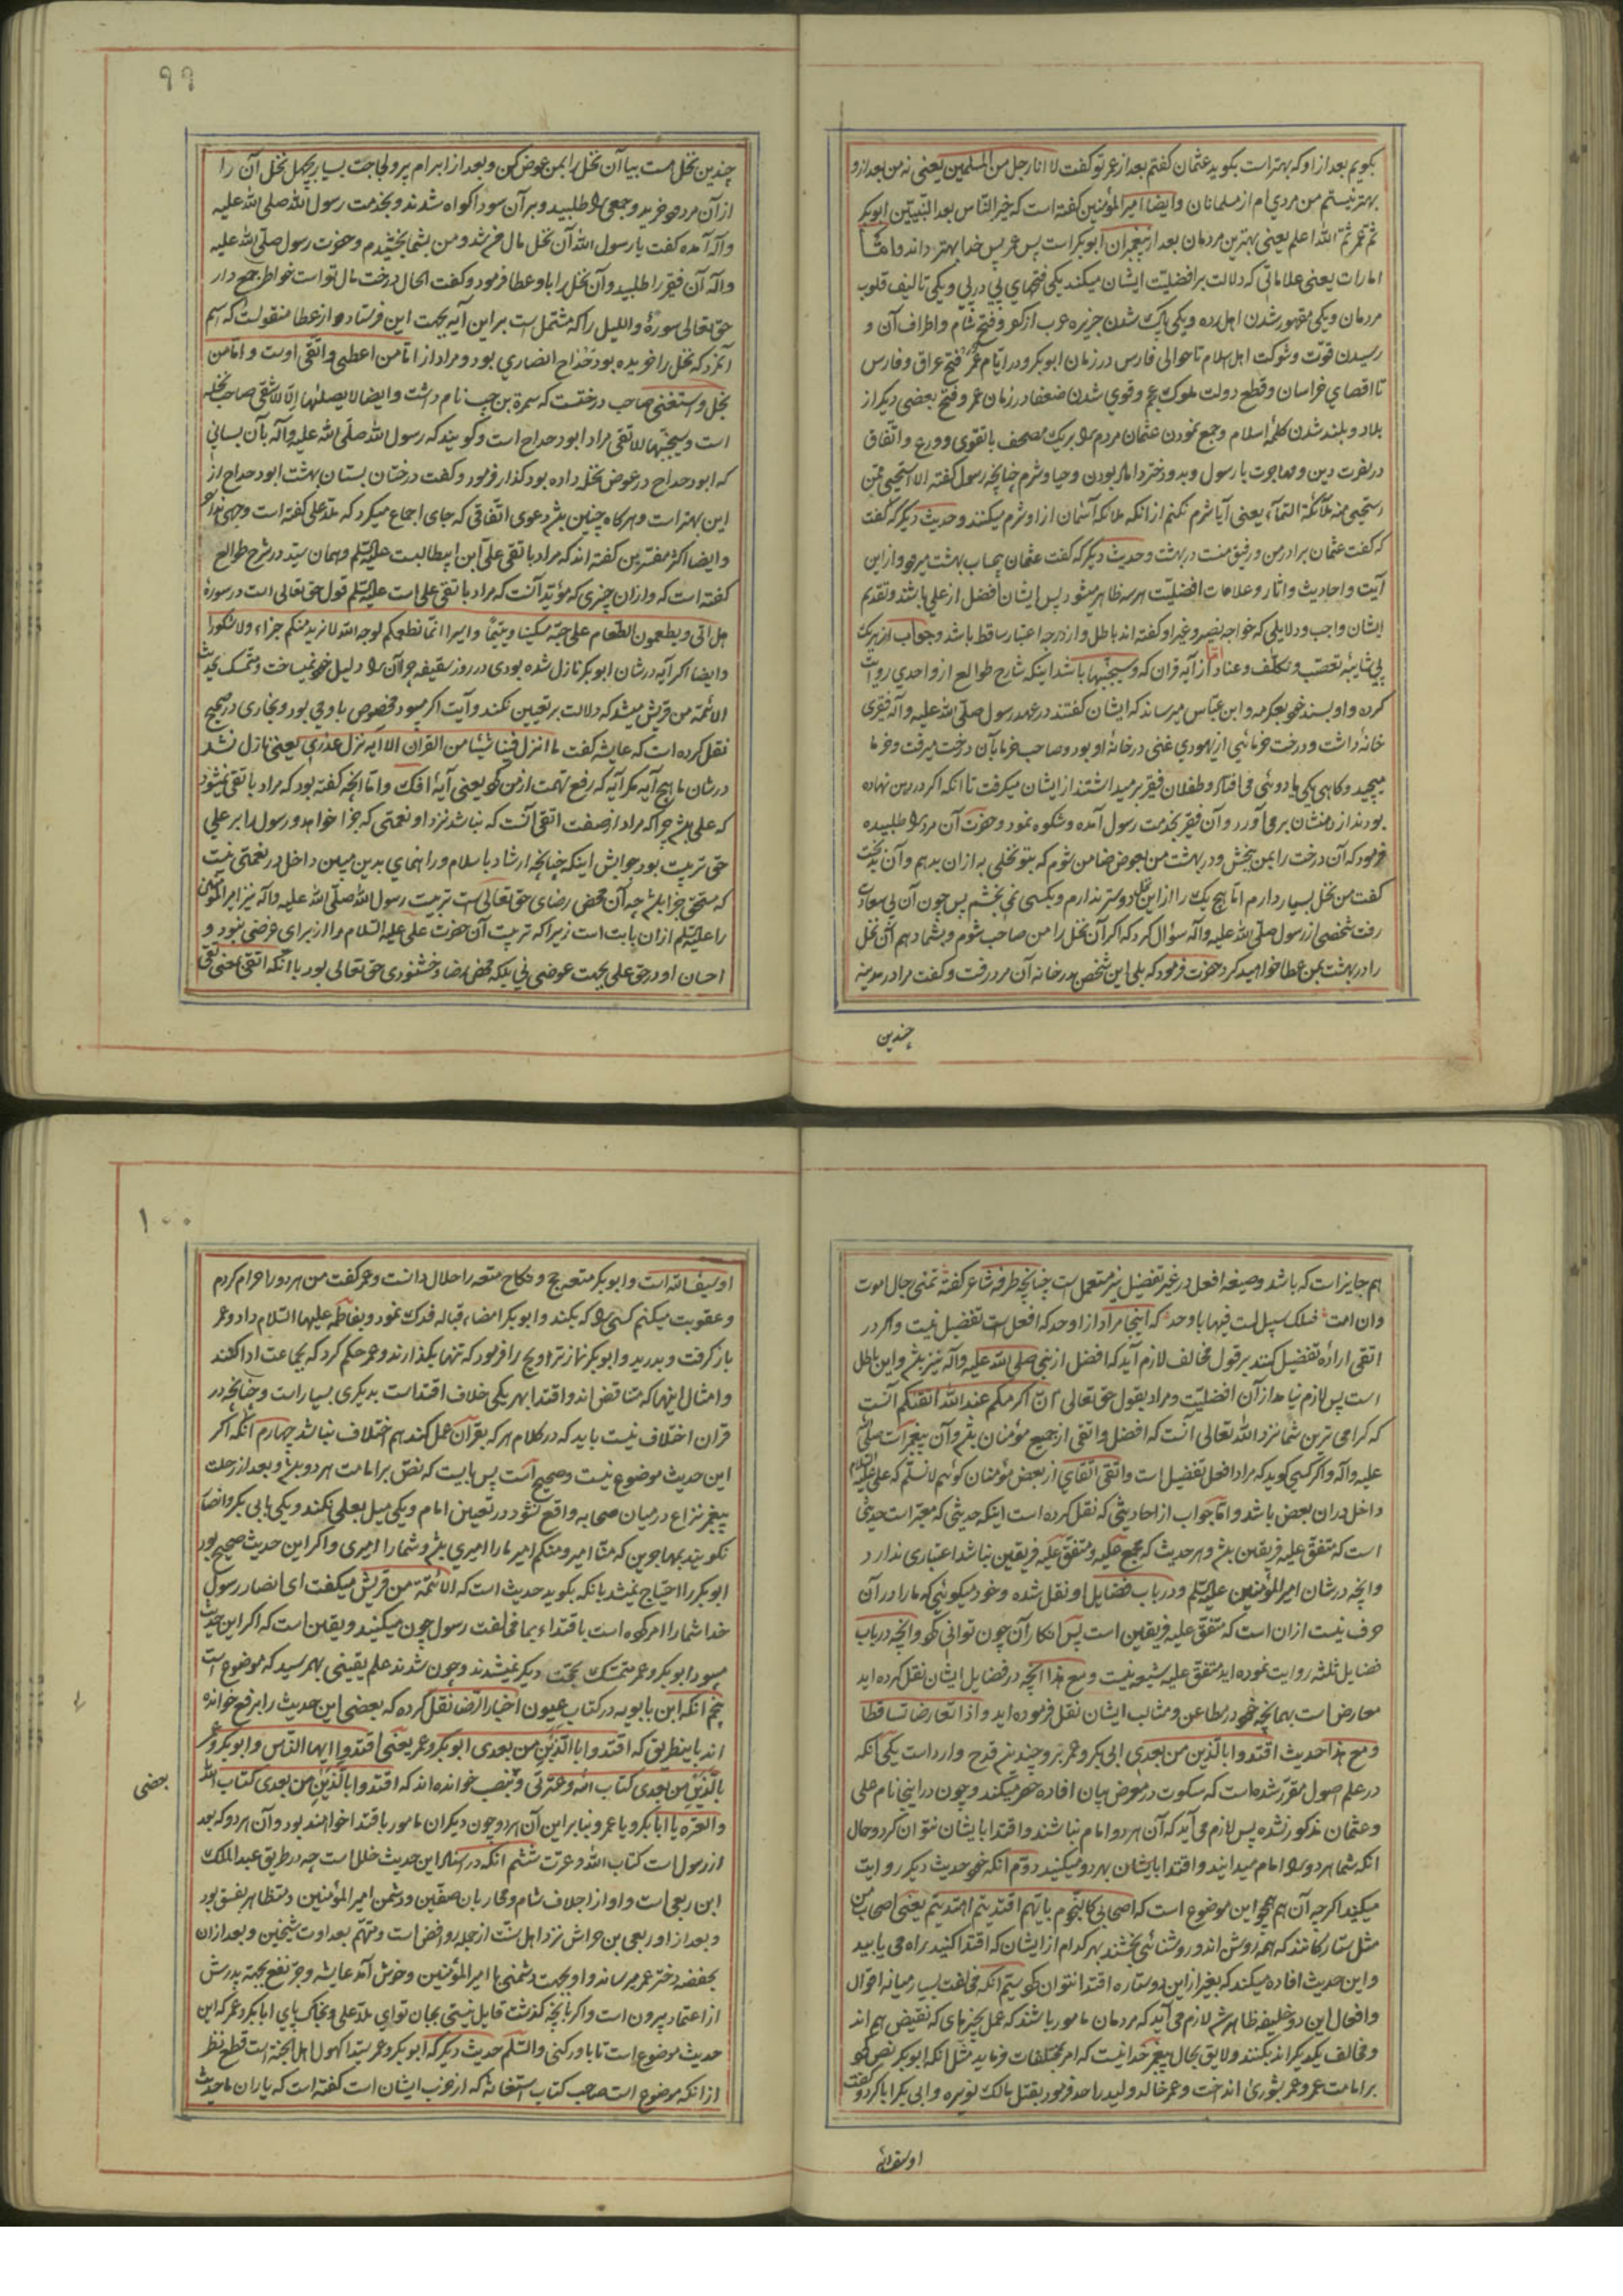 بکویم بعد ازو که بهتر است بکوید عثمان کفتم بعد از عمر تو کفت لا انا رجل من المسلمین یعنی نه من بعد ازو
بهتر نیستم من مردی ام از مسلمانان و ایضا امیر المؤمنین کفته است که خیر الناس بعد النبیین ابوبکر
ثم عمر ثم الله اعلم یعنی بهترین مردمان بعد از پیغمبران ابوبکر است پس عمر پس خدا بهتر داند و اما
امارات یعنی علاماتی که دلالت بر افضلیت ایشان میکند یکی فتحهای پی در پی و یکی تالیف قلوب
مردمان و یکی مقهور شدن اهل رده و یکی پاک شدن جزیره عرب از کفر و فتح شام و اطراف آن و
رسیدن قوت و شوکت اهل اسلام تا حوالی فارس در زمان ابوبکر و در ایام عمر فتح عراق و فارس
تا اقصای خراسان و قطع دولت ملوک عجم و قوی شدن ضعفا در زمان عمر و فتح بعضی دیکر از
بلاد و بلند شدن کلمهٔ اسلام و جمع نمودن عثمان مردم را بر یک مصحف با تقوی و ورع و اتفاق
در نصرت دین و مهاجرت با رسول و بدو دختر داماد بودن و حیا و شرم چنانچه رسول کفته الا استحیی ممن
یستحیی منه ملائکة السماء یعنی آیا شرم نکنم از انکه ملائکه آسمان ازو شرم میکنند و حدیث دیکر که کفت
که کفت عثمان برادر من و رفیق منست در بهشت و حدیث دیکر که کفت عثمان بیحساب بهشت میرود و از این
آیت و احادیث و اثار و علامات افضلیت هر سه ظاهر میشود پس ایشان افضل از علی باشند و تقدیم
ایشان واجب و دلایلی که خواجه نصیر و غیر او کفته اند باطل و از درجه اعتبار ساقط باشد و جواب از هر یک
بی شایبهٔ تعصب و تکلف و عناد اما از آیه قران که و سیجنبها باشد اینکه شارح طوالع از واحدی روایت
کرده و او بسند خود بعکرمه و ابن عباس میرساند که ایشان کفتند در عهد رسول صلی الله علیه و آله فقیری
خانهٔ داشت و درخت خرمائی از یهودی غنی در خانهٔ او بود و صاحب خرما بآن درخت میرفت و خرما
میچید و کاهی یکی یا دوئی می افتاد و طفلان فقیر بر میداشتند از ایشان میکرفت تا انکه اکر در دهن نهاده
بودند از دهنشان بر می آورد و آن فقیر بخدمت رسول آمده و شکوه نمود و حضرت آن مرد را طلبیده
فرمود که آن درخت را بمن ببخش و در بهشت من بعوض ضامن شوم که بتو نخلی به از ان بدهم و آن بدبخت
کفت من نخل بسیار دارم اما هیچ یک را از این نخل دوستر ندارم و بکسی نمی بخشم پس چون آن بی سعادت
رفت شخصی از رسول صلی الله علیه و آله سؤال کرد که اکر آن نخل را من صاحب شوم و بشما دهم آن نخل
را در بهشت بمن عطا خواهید کرد حضرت فرمود که بلی این شخص در خانه آن مرد رفت و کفت مرا در مدینه
چندین
٩٩
چندین نخل هست بیا آن نخل را بمن عوض کن و بعد از ابرام پر و لجاجت بسیار بچهل نخل آن را
از آن مرد خرید و جمعی را طلبید و بر آن سودا کواه شدند و بخدمت رسول الله صلی الله علیه
و آله آمده کفت یا رسول الله آن نخل مال من شد و من بشما بخشیدم و حضرت رسول صلی الله علیه
و آله آن فقیر را طلبید و آن نخل را باو عطا فرمود و کفت الحال درخت مال تو است خواطر جمع دار
حق تعالی سورهٔ و اللیل را که مشتمل است بر این آیه بجهت این فرستاد و از عطا منقولست که اسم
آنمرد که نخل را خریده بود دحداح انصاری بود و مراد از اما من اعطی و اتقی اوست و اما من
بخل و استغنی صاحب درختست که سمرة بن جندب نام داشت و ایضا لا یصلیها الا الاشقی صاحب نخله
است و سیجنبها الاتقی مراد ابو دحداح است و کویند که رسول الله صلی الله علیه و آله بآن بستانی
که ابو دحداح در عوض نخله داده بود کذار فرمود و کفت درختان بستان بهشت ابو دحداح از
این بهتر است و هر کاه چنین باشد دعوی اتفاقی که جای اجماع میکرد که ملا علی کفته است وجهی ندارد
و ایضا اکثر مفسرین کفته اند که مراد باتقی علی ابن ابیطالبست علیه السلم و همان سید در شرح طوالع
کفته است که و از ان چیزی که مؤید آنست که مراد باتقی علی است علیه السلم قول حق تعالی است در سورهٔ
هل اتی و یطعمون الطعام علی حبه مسکینا و یتیما و اسیرا انما نطعمکم لوجه الله لا نرید منکم جزاء و لا شکورا
و ایضا اکر آیه در شان ابوبکر نازل شده بودی در روز سقیفه چرا آن را دلیل خود نمیساخت و متمسک بحدیث
الائمة من قریش میشد که دلالت بر تعیین نکند و آیت اکر میبود مخصوص باو می بود و بخاری در صحیح
نقل کرده است که عایشه کفت ما انزل فینا شیئا من القران الا ایه نزل عذری یعنی نازل نشد
در شان ما هیچ آیه مکر آیه که رفع تهمت از من کرد یعنی آیهٔ افک و اما انچه کفته بود که مراد باتقی نمیشود
که علی باشد چرا که مراد از صفت اتقی آنست که نباشد نزد او نعمتی که جزا خواهد و رسول را بر علی
حق تربیت بود جوابش اینکه چنانچه ارشاد باسلام و راهنمای بدین مبین داخل در نعمتی نیست
که مستحق جزا باشد چه آن محض رضای حق تعالی است تربیت رسول الله صلی الله علیه و آله نیز امیر المؤمنین
را علیه السلم از ان بابت است زیرا که تربیت آن حضرت علی علیه السلام را از برای غرضی نبود و
احسان او در حق علی بجهت عوضی نی بلکه محض رضا و خشنودی حق تعالی بود با آنکه اتقی بمعنی تقی
هم جایز است که باشد و صیغه افعل در غیر تفضیل نیز مستعمل است چنانچه طرفه شاعر کفته تمنی رجال اموت
و ان امت فتلک سبیل لست فیها باوحد که اینجا مراد از اوحد که افعل است تفضیل نیست و اکر در
اتقی ارادهٔ تفضیل کنند بر قول مخالف لازم آید که افضل از نبی صلی الله علیه و آله نیز باشد و این باطل
است پس لازم نیامد از آن افضلیت و مراد بقول حق تعالی ان اکرمکم عند الله اتقیکم آنست
که کرامی ترین شما نزد الله تعالی آنست که افضل و اتقی از جمیع مؤمنان باشد و آن پیغمبر است صلی الله
علیه و آله و اکر کسی کوید که مراد افعل تفضیل است و اتقی اتقای از بعض مؤمنان کوئیم لا نسلم که علی علیه السلام
داخل در ان بعض باشد و اما جواب از احادیثی که نقل کرده است اینکه حدیثی که معتبر است حدیثی
است که متفق علیه فریقین باشد و هر حدیث که مجمع علیه و متفق علیه فریقین نباشد اعتباری ندارد
و انچه در شان امیر المؤمنین علیه السلم و در باب فضایل او نقل شده و خود میکوئی که ما را در آن
حرف نیست از ان است که متفق علیه فریقین است پس انکار آن چون توانی کرد و انچه در باب
فضایل ثلثه روایت نموده اید متفق علیه شیعه نیست و مع هذا انچه در فضایل ایشان نقل کرده اید
معارض است بهمانچه خود در مطاعن و مثالب ایشان نقل فرموده اید و اذا تعارضا تساقطا
و مع هذا حدیث اقتدوا بالذین من بعدی ابی بکر و عمر بر او چندین قدح وارد است یکی آنکه
در علم اصول مقرر شده است که سکوت در معرض بیان افاده حصر میکند و چون در اینجا نام علی
و عثمان مذکور نشده پس لازم می آید که آن هر دو امام نباشند و اقتدا بایشان نتوان کرد و حال
انکه شما هر دو را امام میدانید و اقتدا بایشان هر دو میکنید دوم آنکه خود حدیث دیکر روایت
میکنید اکرچه آن هم همچو این موضوع است که اصحابی کالنجوم بایهم اقتدیتم اهتدیتم یعنی اصحاب من
مثل ستارکانند که همه روشن اند و روشنائی بخشند بهر کدام از ایشان که اقتدا کنید راه می یابید
و این حدیث افاده میکند که بغیر از این دو ستاره اقتدا نتوان کرد سیم آنکه مخالفت بسیار میانه اقوال
و افعال این دو خلیفه ظاهر شد لازم می آید که مردمان مامور باشند که عمل بچیزهای که نقیض هم اند
و مخالف یکدیکر اند بکنند و لایق بحال پیغمبر خدا نیست که امر بمختلفات فرماید مثل انکه ابوبکر نص کرد
بر امامت عمر و عمر بشوری انداخت و عمر خالد ولید را حد فرمود بقتل مالک نویره و ابی بکر ابا کرد و کفت
او سیف الله
١٠٠
او سیف الله است و ابوبکر متعه حج و نکاح متعه را حلال دانست و عمر کفت من هر دو را حرام کردم
و عقوبت میکنم کسی را که بکند و ابوبکر امضاء قباله فدک نمود و بفاطمه علیها السلام داد و عمر
باز کرفت و بدرید و ابوبکر نماز تراویح را فرمود که تنها بکذارند و عمر حکم کرد که بجماعت ادا کنند
و امثال اینها که متناقض اند و اقتدا بهر یکی خلاف اقتداست بدیکری بسیار است و چنانچه در
قران اختلاف نیست باید که در کلام هر که بقرآن عمل کند هم اختلاف نباشد چهارم آنکه اکر
این حدیث موضوع نیست و صحیح است پس بایست که نص بر امامت هر دو باشد و بعد از رحلت
پیغمبر نزاع در میان صحابه واقع نشود در تعیین امام و یکی میل بعلی نکند و یکی بابی بکر و انصار
نکویند بمهاجرین که منا امیر و منکم امیر ما را امیری باشد و شما را امیری و اکر این حدیث صحیح بود
ابوبکر را احتیاج نمیشد بانکه بکوید حدیث است که الائمة من قریش میکفت ای انصار رسول
خدا شما را امر کرده است باقتداء بما مخالفت رسول چون میکنید و یقین است که اکر این حدیث
میبود ابوبکر و عمر متمسک بحجت دیکر نمیشدند و چون شدند علم یقینی بهم رسید که موضوع است
پنجم انکه ابن بابویه در کتاب عیون اخبار الرضا نقل کرده که بعضی این حدیث را برفع خوانده
اند باینطریق که اقتدوا باللذین من بعدی ابوبکر و عمر یعنی اقتدوا ایها الناس و ابوبکر و عمر
باللذین من بعدی کتاب الله و عترتی و بعضی بنصب خوانده اند که اقتدوا باللذین من بعدی کتاب الله
و العتره یا ابا بکر و یا عمر و بنابر این آن هر دو چون دیکران مامور باقتدا خواهند بود و آن هر دو که بعد
از رسول است کتاب الله و عترت ششم انکه در اسناد این حدیث خلل است چه در طریق عبد الملک
ابن ربعی است و او از اجلاف شام و محاربان صفین و دشمن امیر المؤمنین و متظاهر بفسق بود
و بعد از او ربعی بن حراش نزد اهل سنت از جمله روافض است و متهم بعداوت شیخین و بعد از ان
بحفصه دختر عمر میرساند و او بجهت دشمنی با امیر المؤمنین و خوش آمد عایشه و جر نفع بجهة پدرش
از اعتماد بیرون است و اکر بانچه کذشت قایل نیستی بجان تو ای ملا علی و بخاک پای ابا بکر و عمر که این
حدیث موضوع است تا باور کنی و السلم حدیث دیکر که ابوبکر و عمر سیدا کهول اهل الجنه است قطع نظر
از انکه موضوع است صاحب کتاب استغاثه که از عرب ایشان است کفته است که یاران ما حدیث
بعضی